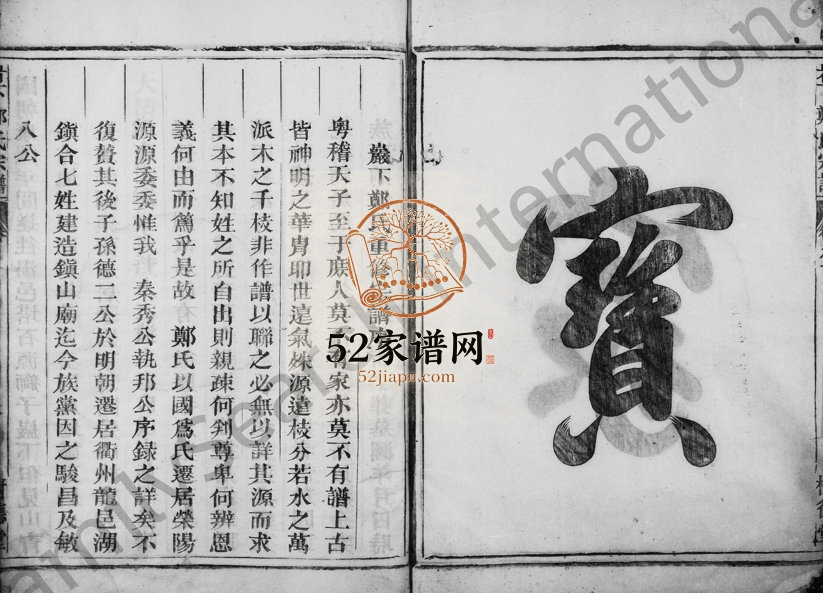 寶
巖下鄭氏重修宗譜
粵稽天子至于庶人莫 家亦莫不有譜上古
皆神明之華胄叩世遠氣姝源遠枝分若水之萬
派木之千枝非作譜以聯之必無以詳其源而求
其本不知姓之所自出則親疎何判尊卑何辨恩
義何由而篤乎是故 鄭氏以國爲氏遷居滎陽
源源委委惟我 秦秀公執邦公序録之詳矣不
復贅其後子孫德二公於明朝遷居衢州龍邑湖
鎭合七姓建造鎭山廟迄今族黨因之駿昌及敏
八公
52家谱网
52jiapu.com
Family Search International